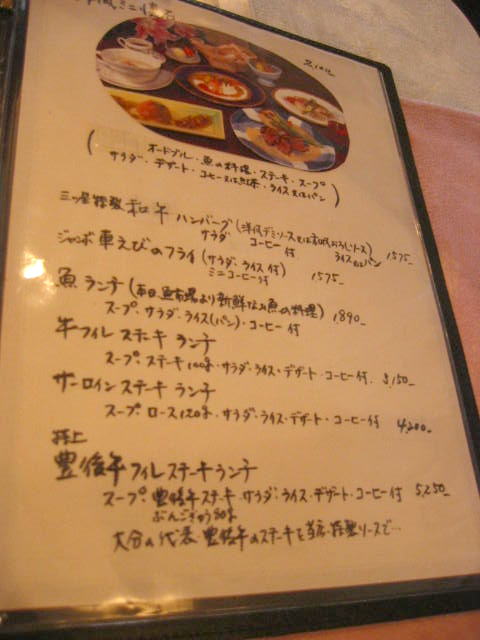 (オードブル・魚の料理・ステーキ・スープ
サラダ・デザート・コーヒー又は紅茶・ライス又はパン)
三ツ星特製 和牛 ハンバーグ(洋風デミソース又は和風おろしソース) 1575-
サラダ コーヒー付 ライス又はパン
ジャンボ車えびのフライ(サラダ・ライス付) 1575-
ミニコーヒー付
魚ランチ(本日魚市場より新鮮な魚の料理) 1,890-
スープ・サラダ・ライス(パン)・コーヒー付
牛フィレステーキランチ
スープ・ステーキ100g・サラダ・ライス・デザート・コーヒー付 3,150-
サーロインステーキランチ
スープ・ロース120g・サラダ・ライス・デザート・コーヒー付 4,200-
特上
豊後牛フィレステーキランチ
スープ・豊後牛ステーキ・サラダ・ライス・デザート・コーヒー付 5,250-
ぶんごぎゅう
大分の代表 豊後牛のステーキを当店特製ソースで…